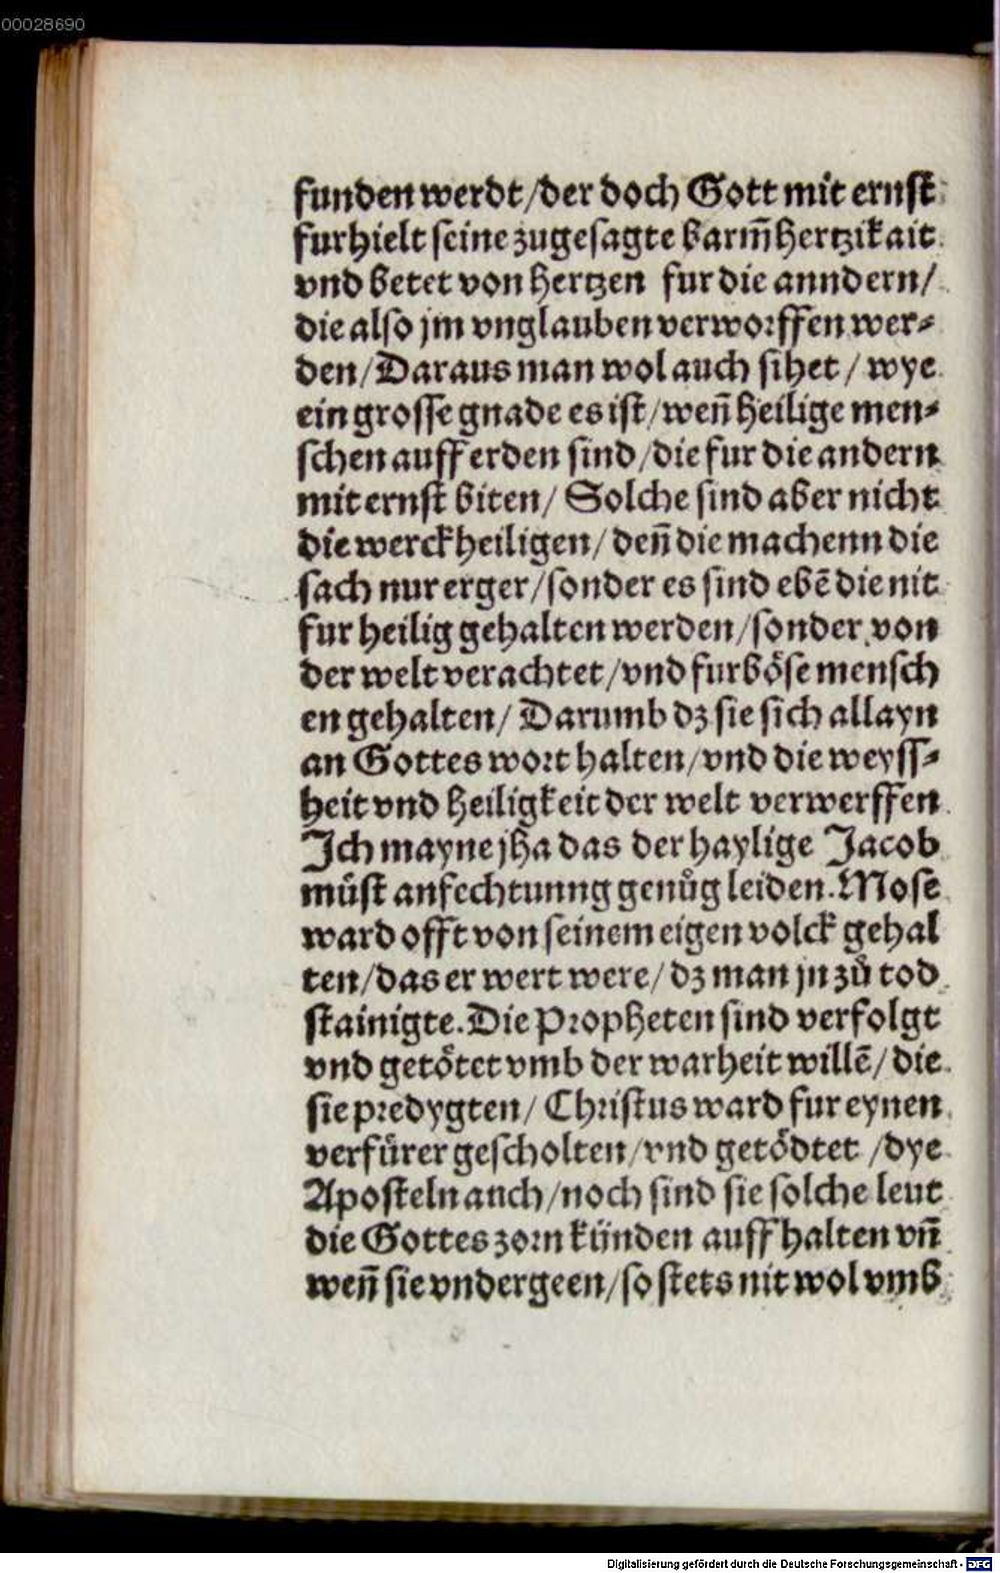 00028690
funden werdt/der doch Gott mit ernst
furhielt seine zugesagte barm̄hertzikait
vnd betet von hertzen fur die anndern/
die also jm vnglauben verworffen wer⸗
den/Daraus man wol auch sihet/ wye
ein grosse gnade es ist/wen̄ heilige men⸗
schen auff erden sind/die fur die andern
mit ernst biten/ Solche sind aber nicht
die werckheiligen/ den̄ die machenn die
sach nur erger/sonder es sind ebē die nit
fur heilig gehalten werden/sonder von
der welt verachtet/vnd fur böse mensch
en gehalten/ Darumb dz sie sich allayn
an Gottes wort halten/vnd die weyss⸗
heit vnd heiligkeit der welt verwerffen
Ich mayne jha das der haylige Jacob
müst anfechtunng genůg leiden. Mose
ward offt von seinem eigen volck gehal
ten/das er wert were/ dz man jn zů tod
stainigte. Die Propheten sind verfolgt
vnd getötet vmb der warheit willē/ die
sie predygten/ Christus ward fur eynen
verfürer gescholten/vnd getödtet /dye
Aposteln auch/noch sind sie solche leut
die Gottes zorn künden auff halten vn̄
wen̄ sie vndergeen/so stets nit wol vmb
Digitalisierung gefördert durch die Deutsche Forschungsgemeinschaft - DFG